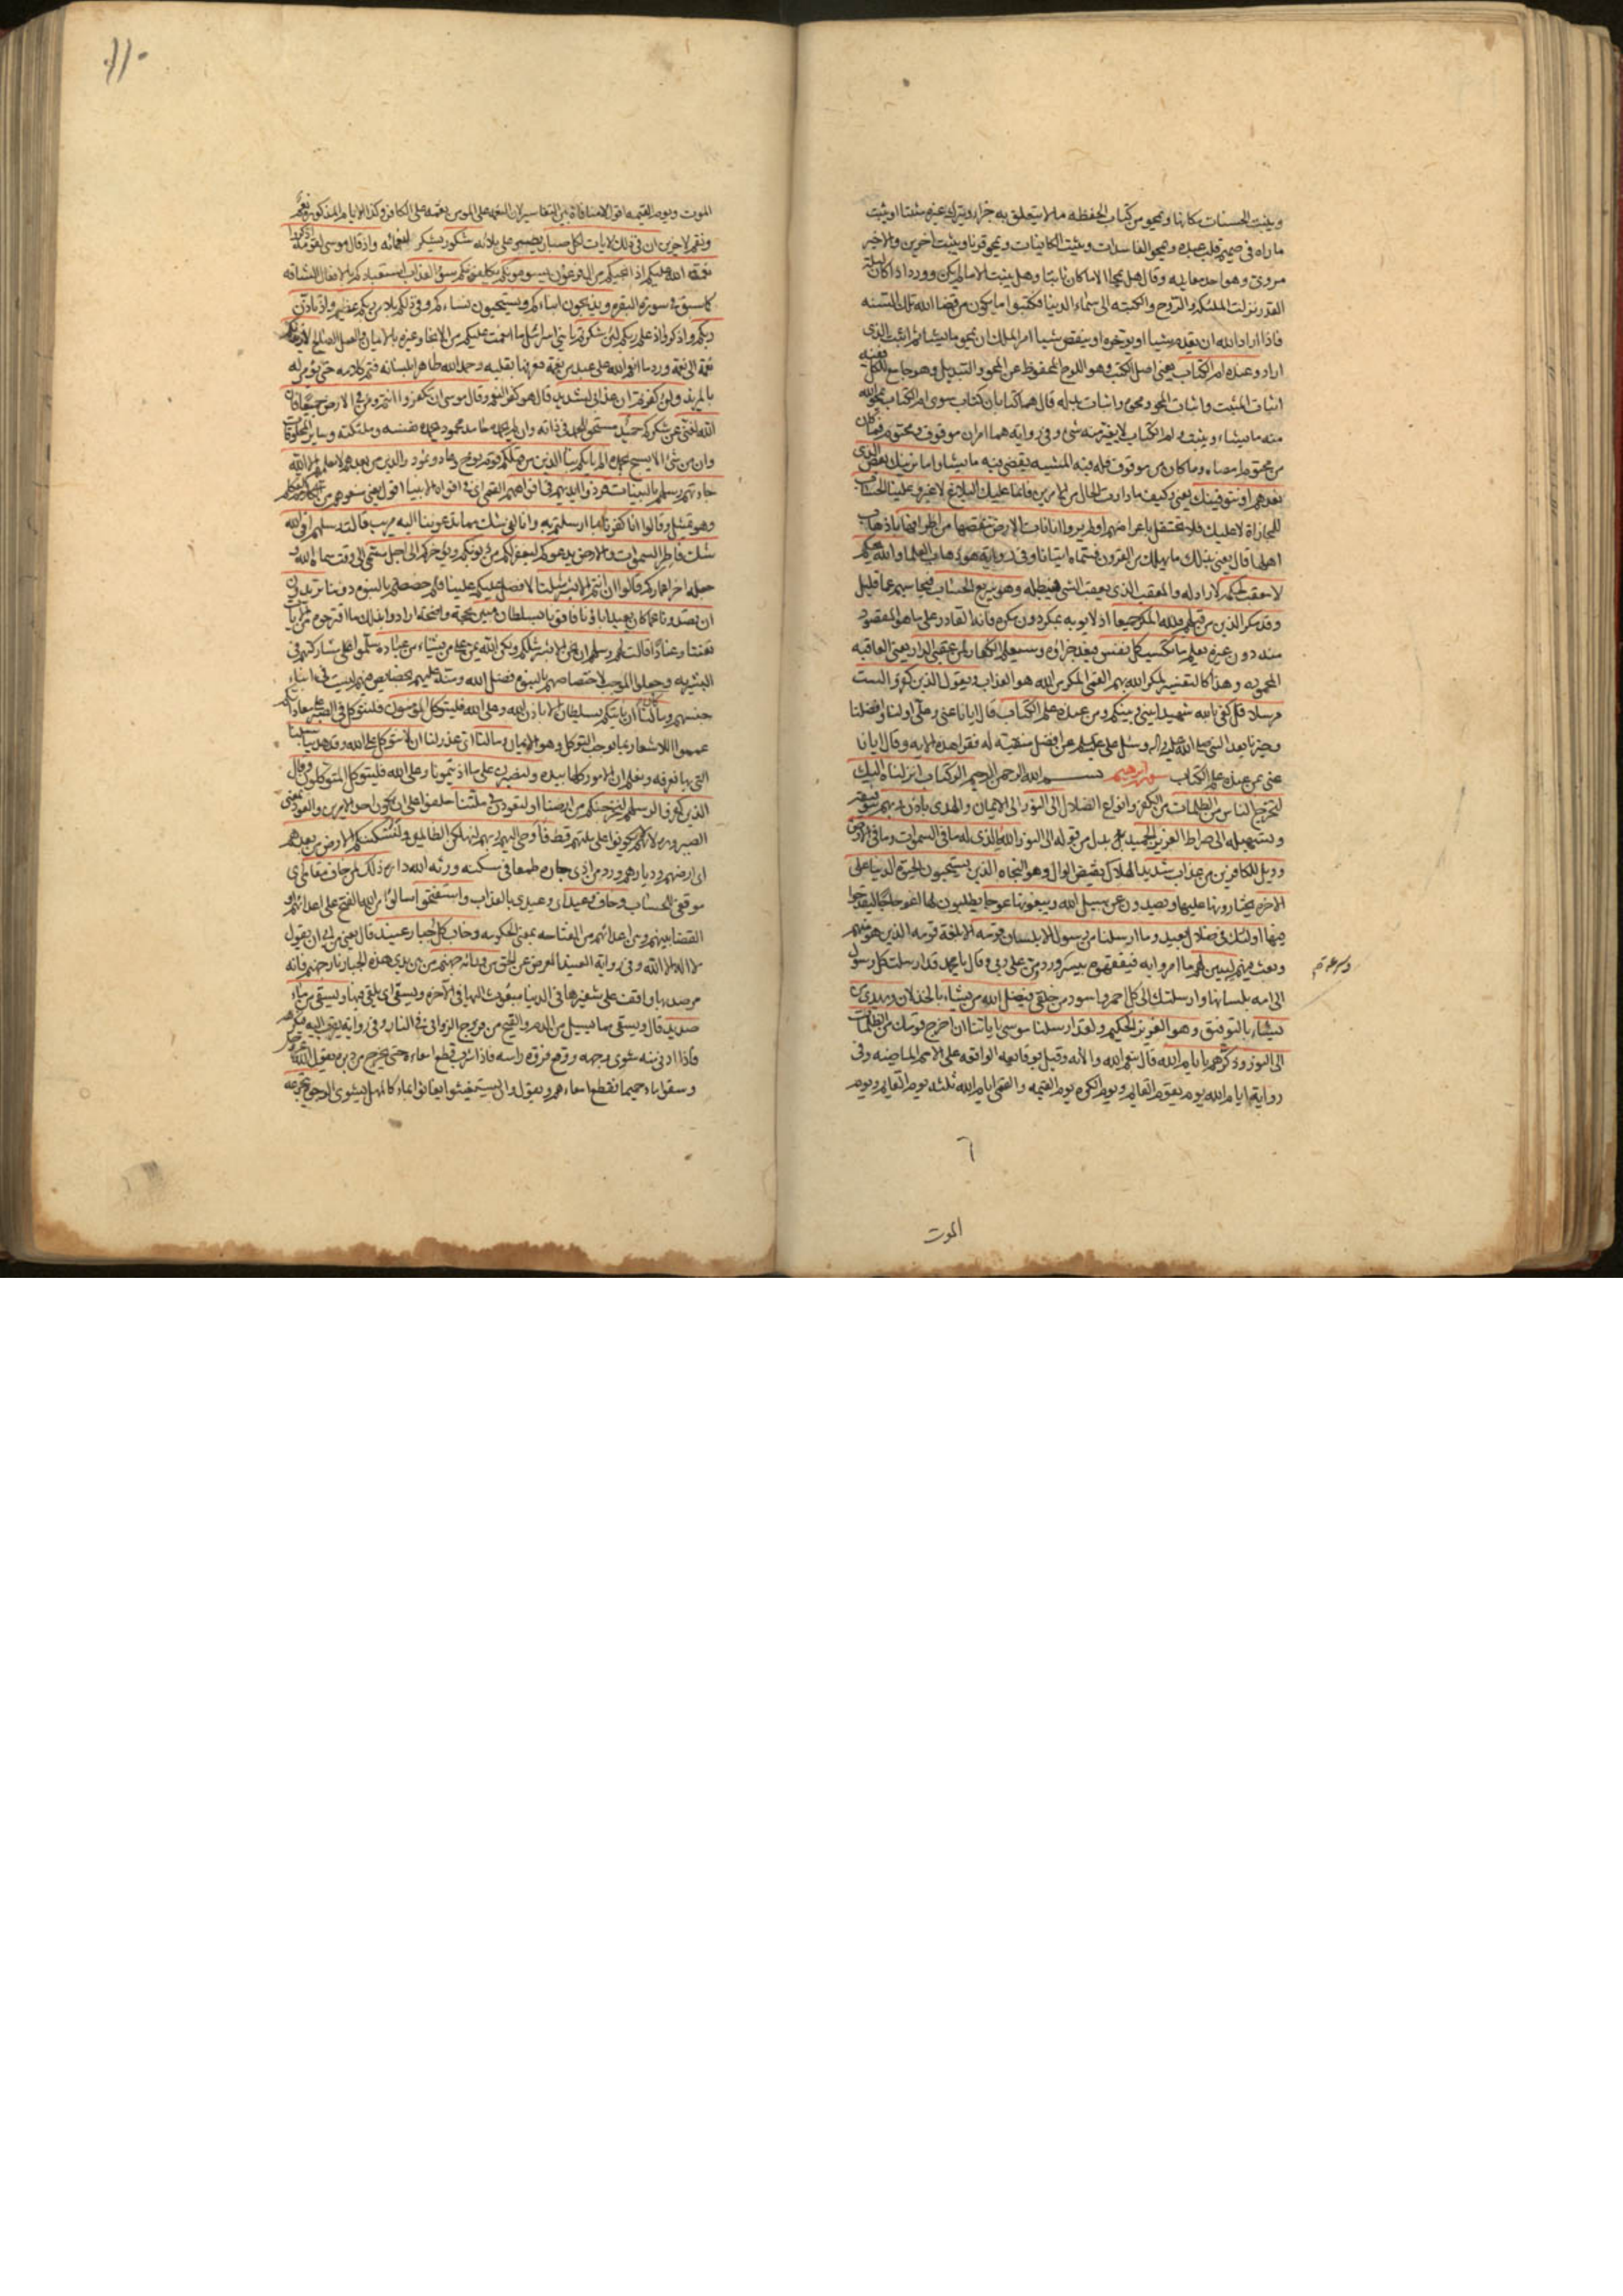 ويثبت الحسنات مكانها ويمحو من كتاب الحفظة ما لا يتعلق به جزاء ويترك غيره مثبتا او يثبت
ما رآه في صميم قلب عبده ويمحو الفاسدات ويثبت الكاينات ويمحو قرنا ويثبت آخرين والاخير
مروي وهو احد معانيه وقال هل يمحا الا ما كان ثابتا وهل يثبت الا ما لم يكن وورد اذا كان ليلة
القدر نزلت الملئكة والروح والكتبة الى سماء الدنيا فكتبوا ما يكون من قضا الله تلك السنه
فاذا اراد الله ان يقدم شيئا او يوخره او ينقص شيئا امر الملك ان يمحو ما يشا ثم اثبت الذي
اراد وعنده ام الكتاب يعني اصل الكتب وهو اللوح المحفوظ عن المحو والتبديل وهو جامع للكل ففيه
اثبات المثبت واثبات المحو ومحوه واثبات بدله قال هما كتابان كتاب سوى ام الكتاب يمحو الله
منه ما يشاء ويثبت وام الكتاب لا يغير منه شئ وفي رواية هما امران موقوف ومحتوم فما كان
من محتوم امضاه وما كان من موقوف فله فيه المشيه يقضي فيه ما يشا واما نرينك بعض الذي
نعدهم او نتوفينك يعني وكيف ما دارت الحال فانما عليك البلاغ لا غير وعلينا الحساب
للمجازاة لا عليك فلا تحتفل باعراضهم اولم يروا انا ناتي الارض ننقصها من اطرافها باذهاب
اهلها قال يعني بذلك ما يهلك من القرون فسماه اتيانا وفي رواية هو ذهاب العلما والله يحكم
لا معقب لحكمه لا راد له والمعقب الذي يعقب الشئ فيبطله وهو سريع الحساب فيحاسبهم عما قليل
وقد مكر الذين من قبلهم فلله المكر جميعا اذ لا يوبه بمكر دون مكره فانه القادر على ما هو المقصود
منه دون غيره يعلم ما تكسب كل نفس فيعد جزاؤه وسيعلم الكفار لمن عقبى الدار يعني العاقبه
المحموده وهذا كالتفسير لمكر الله بهم القمي المكر من الله هو العذاب ويقول الذين كفروا لست
مرسلا قل كفى بالله شهيدا بيني وبينكم ومن عنده علم الكتاب قال ايانا عنى وعلي اولنا وافضلنا
وخيرنا بعد النبي صلى الله عليه واله وسئل علي عن افضل منقبته له فقرا هذه الايه وقال ايانا
عنى بمن عنده علم الكتاب سوره ابرهيم بسم الله الرحمن الرحيم الر كتاب انزلناه اليك
لتخرج الناس من الظلمات من الكفر وانواع الضلال الى النور الى الايمان والهدى باذن ربهم بتوفيقه
وتسهيله الى صراط العزيز الحميد بدل من قوله الى النور الله الذي له ما في السموات وما في الارض
وويل للكافرين من عذاب شديد الهلاك نقيض الوال وهو النجاه الذين يستحبون الحيوة الدنيا على
الاخره يختارونها عليها ويصدون عن سبيل الله ويبغونها عوجا يطلبون لها اعوجاجا ليقدحوا
فيها اولئك في ضلال بعيد وما ارسلنا من رسول الا بلسان قومه الا بلغة قومه الذين هو منهم
وبعث فيهم ليبين لهم ما امروا به فيفقهوه بيسر وورد من علي ربي وقال يا محمد قد ارسلت كل رسول
الى امة بلسانها وارسلتك الى كل احمر واسود من خلقي فيضل الله من يشاء بالخذلان ويهدي من
يشاء بالتوفيق وهو العزيز الحكيم ولقد ارسلنا موسى باياتنا ان اخرج قومك من الظلمات
الى النور وذكرهم بايام الله قال بنعم الله والائه وقيل بوقايعه الواقعه على الامم الماضيه وفي
رواية ايام الله يوم يقوم القايم ويوم الكره ويوم القيمه والقمي ايام الله ثلثه يوم القايم ويوم
وسرعة
٦
الموت
١١٠
الموت ويوم القيمه اقول لا منافاة بين التفاسير لان النعمه على المومن نقمه على الكافر وكذا الايام المذكوره نعم
ونقم لاخرين ان في ذلك لايات لكل صبار يصبر على بلائه شكور يشكر لنعمائه واذ قال موسى لقومه اذكروا
نعمة الله عليكم اذ انجيكم من ال فرعون يسومونكم يكلفونكم سوء العذاب استعبادكم بالافعال الشاقه
كما سبق في سورة البقره ويذبحون ابناءكم ويستحيون نساءكم وفي ذلكم بلاء من ربكم عظيم واذ تاذن
ربكم واذكروا اذ علم ربكم لئن شكرتم يا بني اسرائيل ما انعمت عليكم من الانجا وغيره بالايمان والعمل الصالح لازيدنكم
نعمة الى نعمة ورد ما انعم الله على عبد من نعمة فعرفها بقلبه وحمد الله ظاهرا بلسانه فتم كلامه حتى يؤمر له
بالمزيد ولئن كفرتم ان عذابي لشديد قال هو كفر النعم وقال موسى ان تكفروا انتم ومن في الارض جميعا فان
الله لغني عن شكركم حميد مستحق للحمد في ذاته وان لم يحمده حامد محمود يحمده نفسه وملئكته وساير المخلوقات
وان من شئ الا يسبح بحمده الم ياتكم نبا الذين من قبلكم قوم نوح وعاد وثمود والذين من بعدهم لا يعلمهم الا الله
جاءتهم رسلهم بالبينات فردوا ايديهم في افواههم القمي اي في افواه الانبيا اقول يعني منعوهم من التكلم
وهو تمثيل وقالوا انا كفرنا بما ارسلتم به وانا لفي شك مما تدعوننا اليه مريب قالت رسلهم افي الله
شك فاطر السموات والارض يدعوكم ليغفر لكم من ذنوبكم ويؤخركم الى اجل مسمى الى وقت سماه الله و
جعله اخر اعماركم قالوا ان انتم الا بشر مثلنا لا فضل لكم علينا فلم خصصتم بالنبوه دوننا تريدون
ان تصدونا عما كان يعبد اباؤنا فاتونا بسلطان مبين بحجة واضحة ارادوا بذلك ما اقترحوه من الايات
تعنتا وعنادا قالت لهم رسلهم ان نحن الا بشر مثلكم ولكن الله يمن على من يشاء من عباده سلموا مشاركتهم في
البشريه وجعلوا الموجب لاختصاصهم بالنبوه فضل الله ومنه عليهم بخصايص فيهم ليست في ابناء
جنسهم وما كان لنا ان ناتيكم بسلطان الا باذن الله وعلى الله فليتوكل المؤمنون فلنتوكل في الصبر على معاداتكم
عمموا للاشعار بما يوجب التوكل وهو الايمان وما لنا اي عذر لنا ان لا نتوكل على الله وقد هدينا سبلنا
التي بها نعرفه ونعلم ان الامور كلها بيده ولنصبرن على ما اذيتمونا وعلى الله فليتوكل المتوكلون وقال
الذين كفروا لرسلهم لنخرجنكم من ارضنا او لتعودن في ملتنا حلفوا على ان يكون احد الامرين والعود بمعنى
الصيروره لانهم لم يكونوا على ملتهم قط فاوحى اليهم ربهم لنهلكن الظالمين ولنسكننكم الارض من بعدهم
اي ارضهم وديارهم ورد من اذى جاره طمعا في مسكنه ورثه الله داره ذلك لمن خاف مقامي اي
موقفي للحساب وخاف وعيد اي وعيدي بالعذاب واستفتحوا سالوا من الله الفتح على اعدائهم او
القضا بينهم وبين اعدائهم من الفتاحه بمعنى الحكومه وخاب كل جبار عنيد قال يعني من ابى ان يقول
لا اله الا الله وفي رواية العنيد المعرض عن الحق من ورائه جهنم من بين يدي هذه الجبار نار جهنم فانه
مرصد بها واقف على شفيرها في الدنيا مبعوث اليها في الآخره ويسقى اي يلقى فيها ويسقى من ماء
صديد قال ويسقى مما يسيل من الدم والقيح من فروج الزواني في النار وفي رواية يقرب اليه فيكرهه
فاذا ادني منه شوى وجهه ووقع فروة راسه فاذا شرب قطع امعاءه حتى يخرج من دبره يقول الله عز وجل
وسقوا ماء حميما فقطع امعاءهم ويقول وان يستغيثوا يغاثوا بماء كالمهل يشوي الوجوه يتجرعه